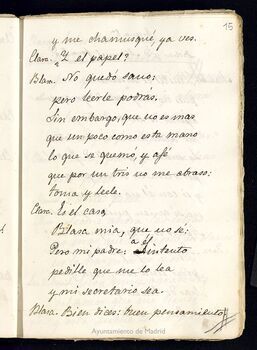 15
y me chamusqué, ya ves.
Clara. ¿Y el papel?
Blasa. No quedó sano;
pero leerle podrás.
Sin embargo, que no es mas
que un poco como esta mano
lo que se quemó, y a fé
que por un tris no me abraso:
toma y leele.
Clara. Es el caso,
Blasa mia, que no sé:
Pero mi padre: a él intento
pedille que me lo lea
y mi secretario sea.
Blasa. Bien dices: buen pensamiento
Ayuntamiento de Madrid